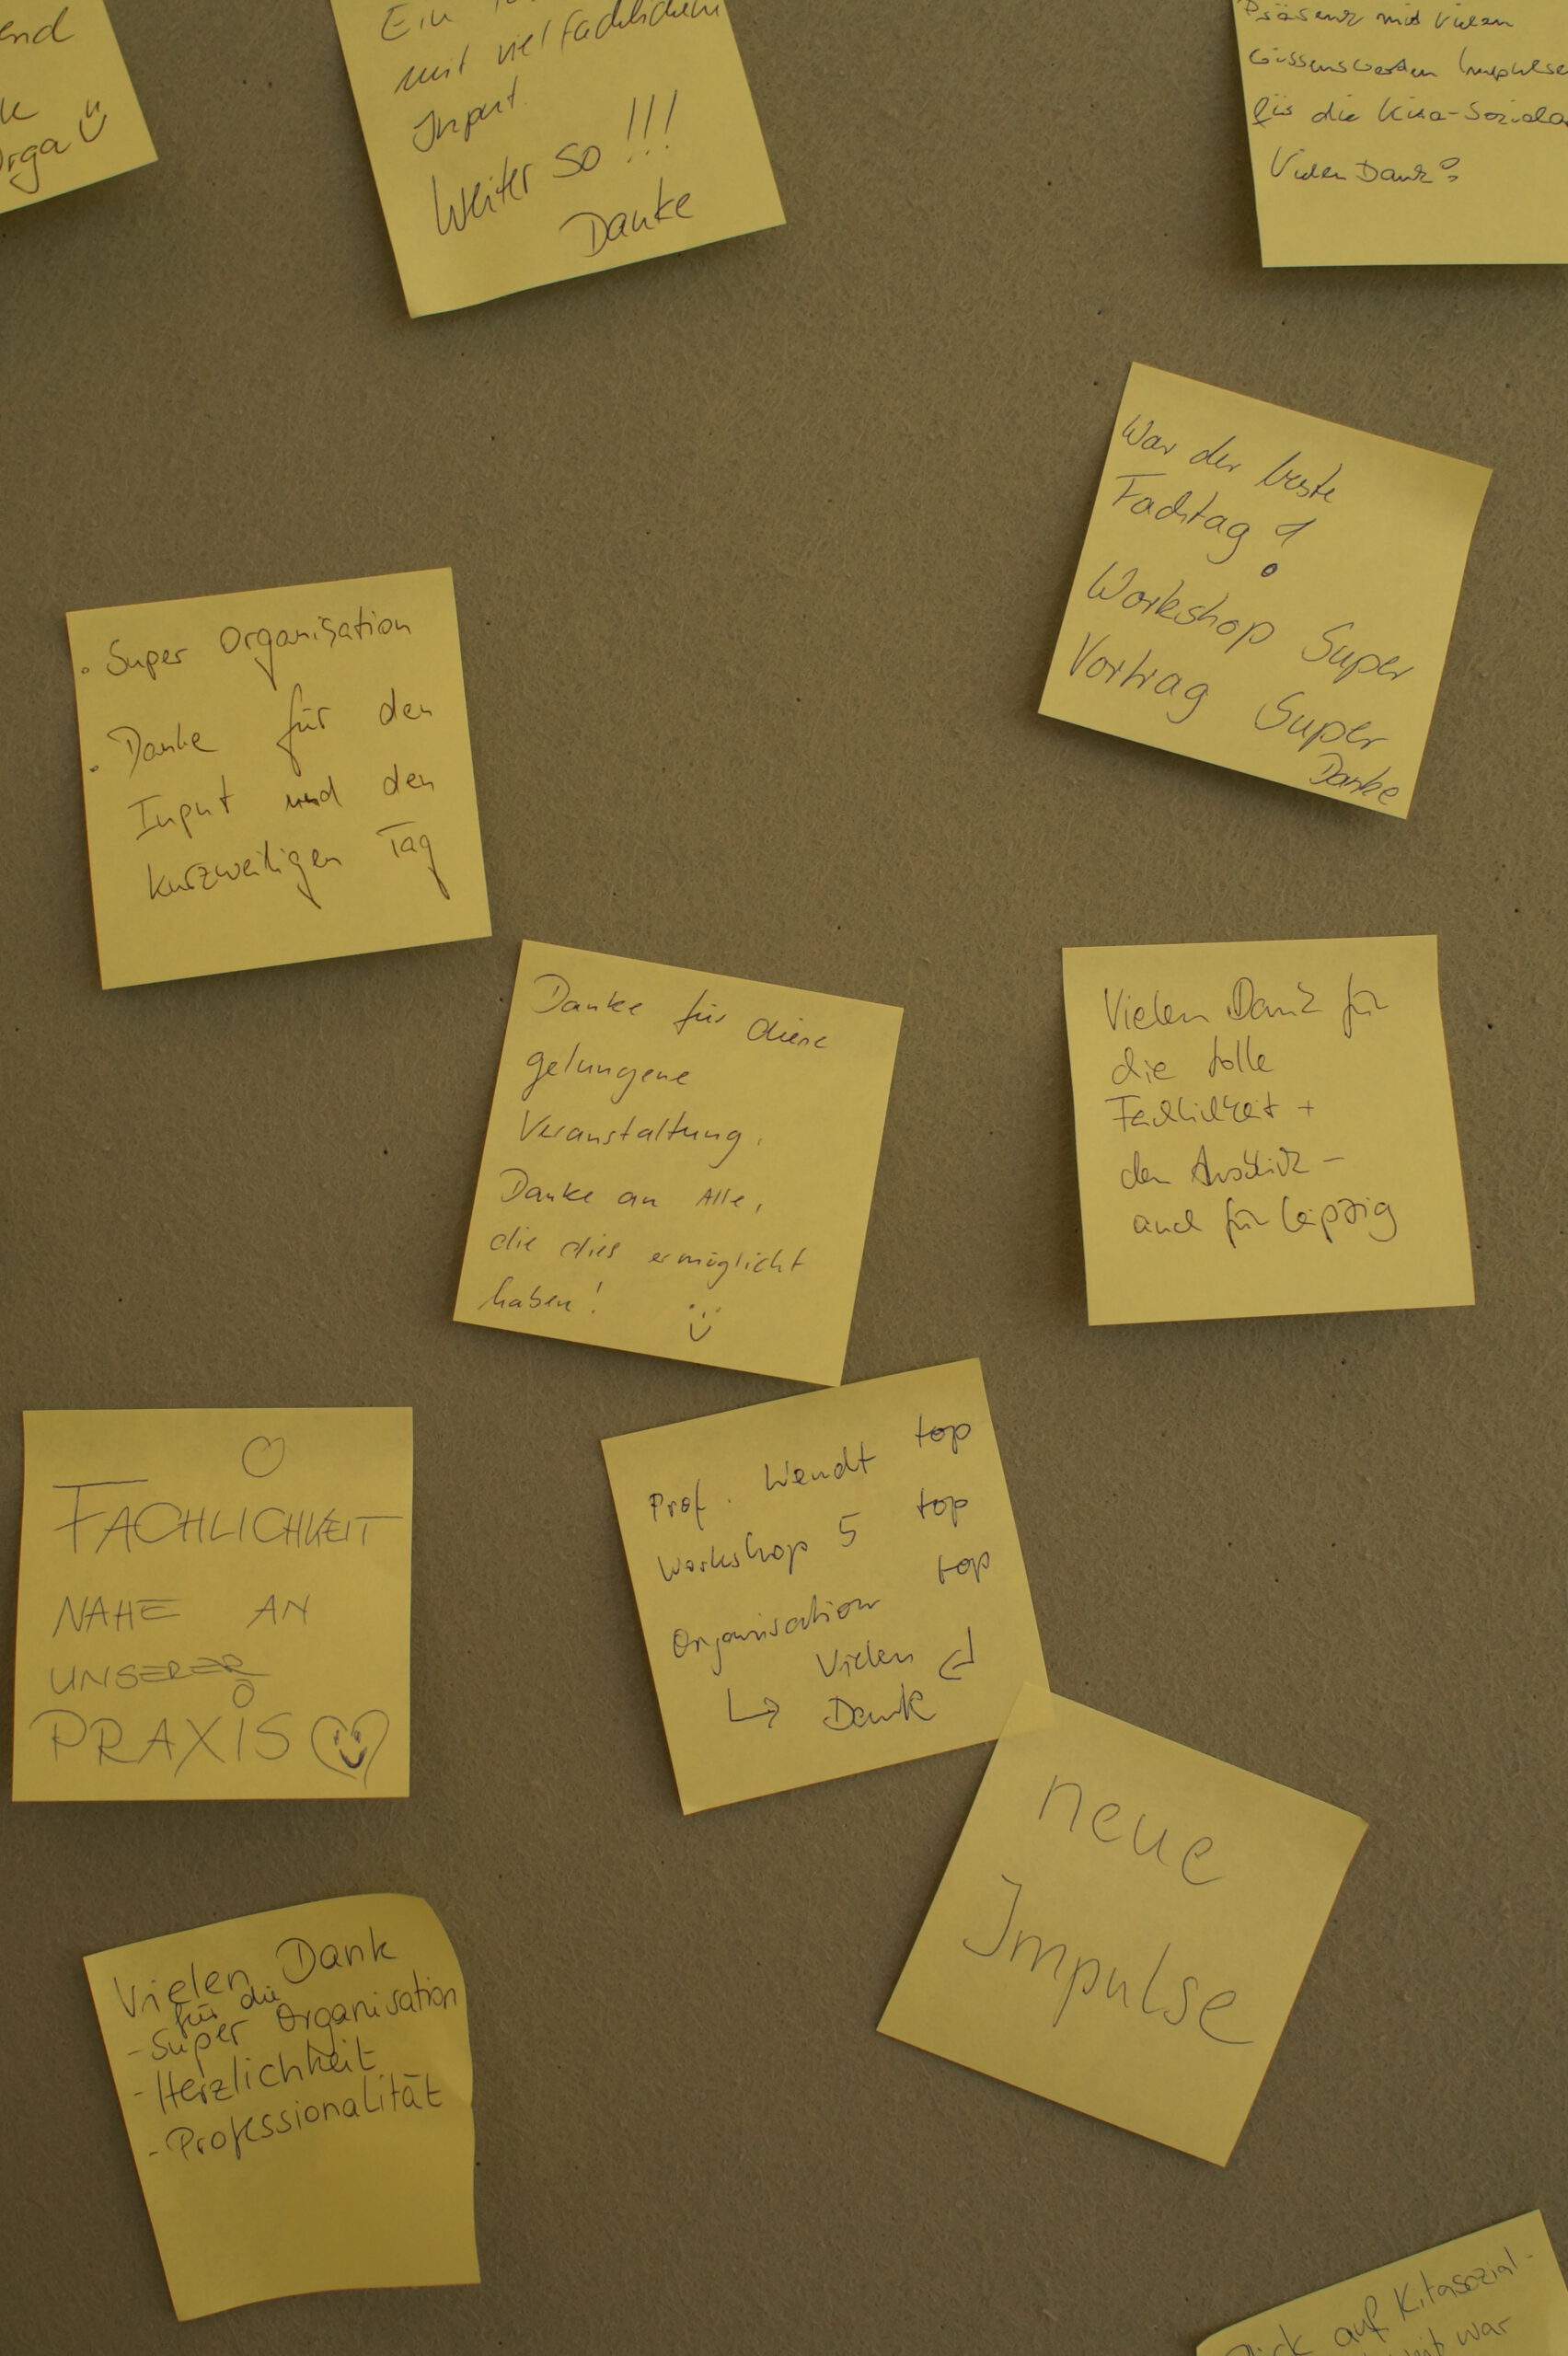 end
Orga
Ein
mit viel fachlichem
Input.
Weiter so !!!
Danke
Präsenz mit vielen
wissenswerten Impulse
für die Kita-Sozial
Vielen Dank!
War der beste
Fachtag !
Workshop Super
Vortrag Super
Danke
• Super Organisation
• Danke für den
Input und den
kurzweiligen Tag
Danke für diese
gelungene
Veranstaltung.
Danke an Alle,
die dies ermöglicht
haben!
Vielen Dank für
die tolle
Fachlichkeit +
den Ausblick –
auch für Leipzig
FACHLICHKEIT
NAHE AN
UNSERER
PRAXIS
Prof. Wendt top
Workshop 5 top
Organisation top
Vielen
Dank
neue
Impulse
Vielen Dank
für die
- Super Organisation
- Herzlichkeit
- Professionalität
auf Kitasozial-
war